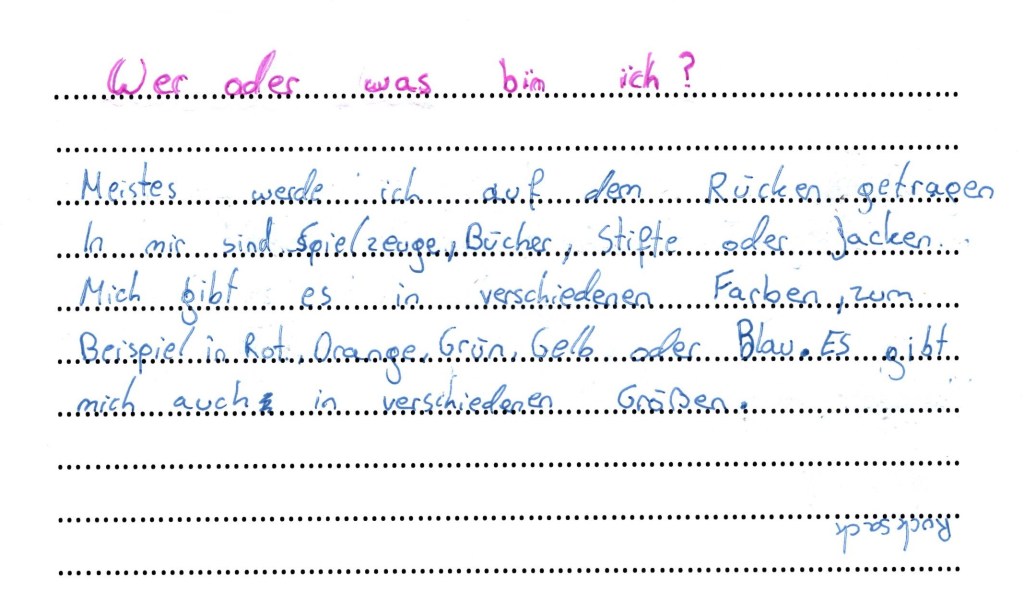 Wer oder was bin ich?
Meistes werde ich auf dem Rücken getragen
In mir sind Spielzeuge, Bücher, Stifte oder Jacken.
Mich gibt es in verschiedenen Farben, zum
Beispiel in Rot, Orange, Grün, Gelb oder Blau. ES gibt
mich auch in verschiedenen Größen.
Rucksack